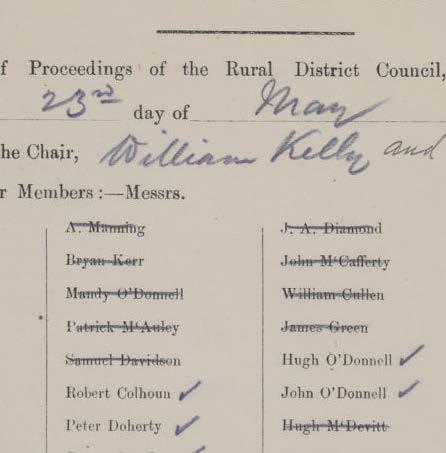 f Proceedings of the Rural District Council,
23rd day of May
he Chair, William Kelly and
r Members:—Messrs.
A. Manning
Bryan Kerr
Mandy O'Donnell
Patrick McAuley
Samuel Davidson
Robert Colhoun ✓
Peter Doherty ✓
J. A. Diamond
John McCafferty
William Cullen
James Green
Hugh O'Donnell ✓
John O'Donnell ✓
Hugh McDevitt